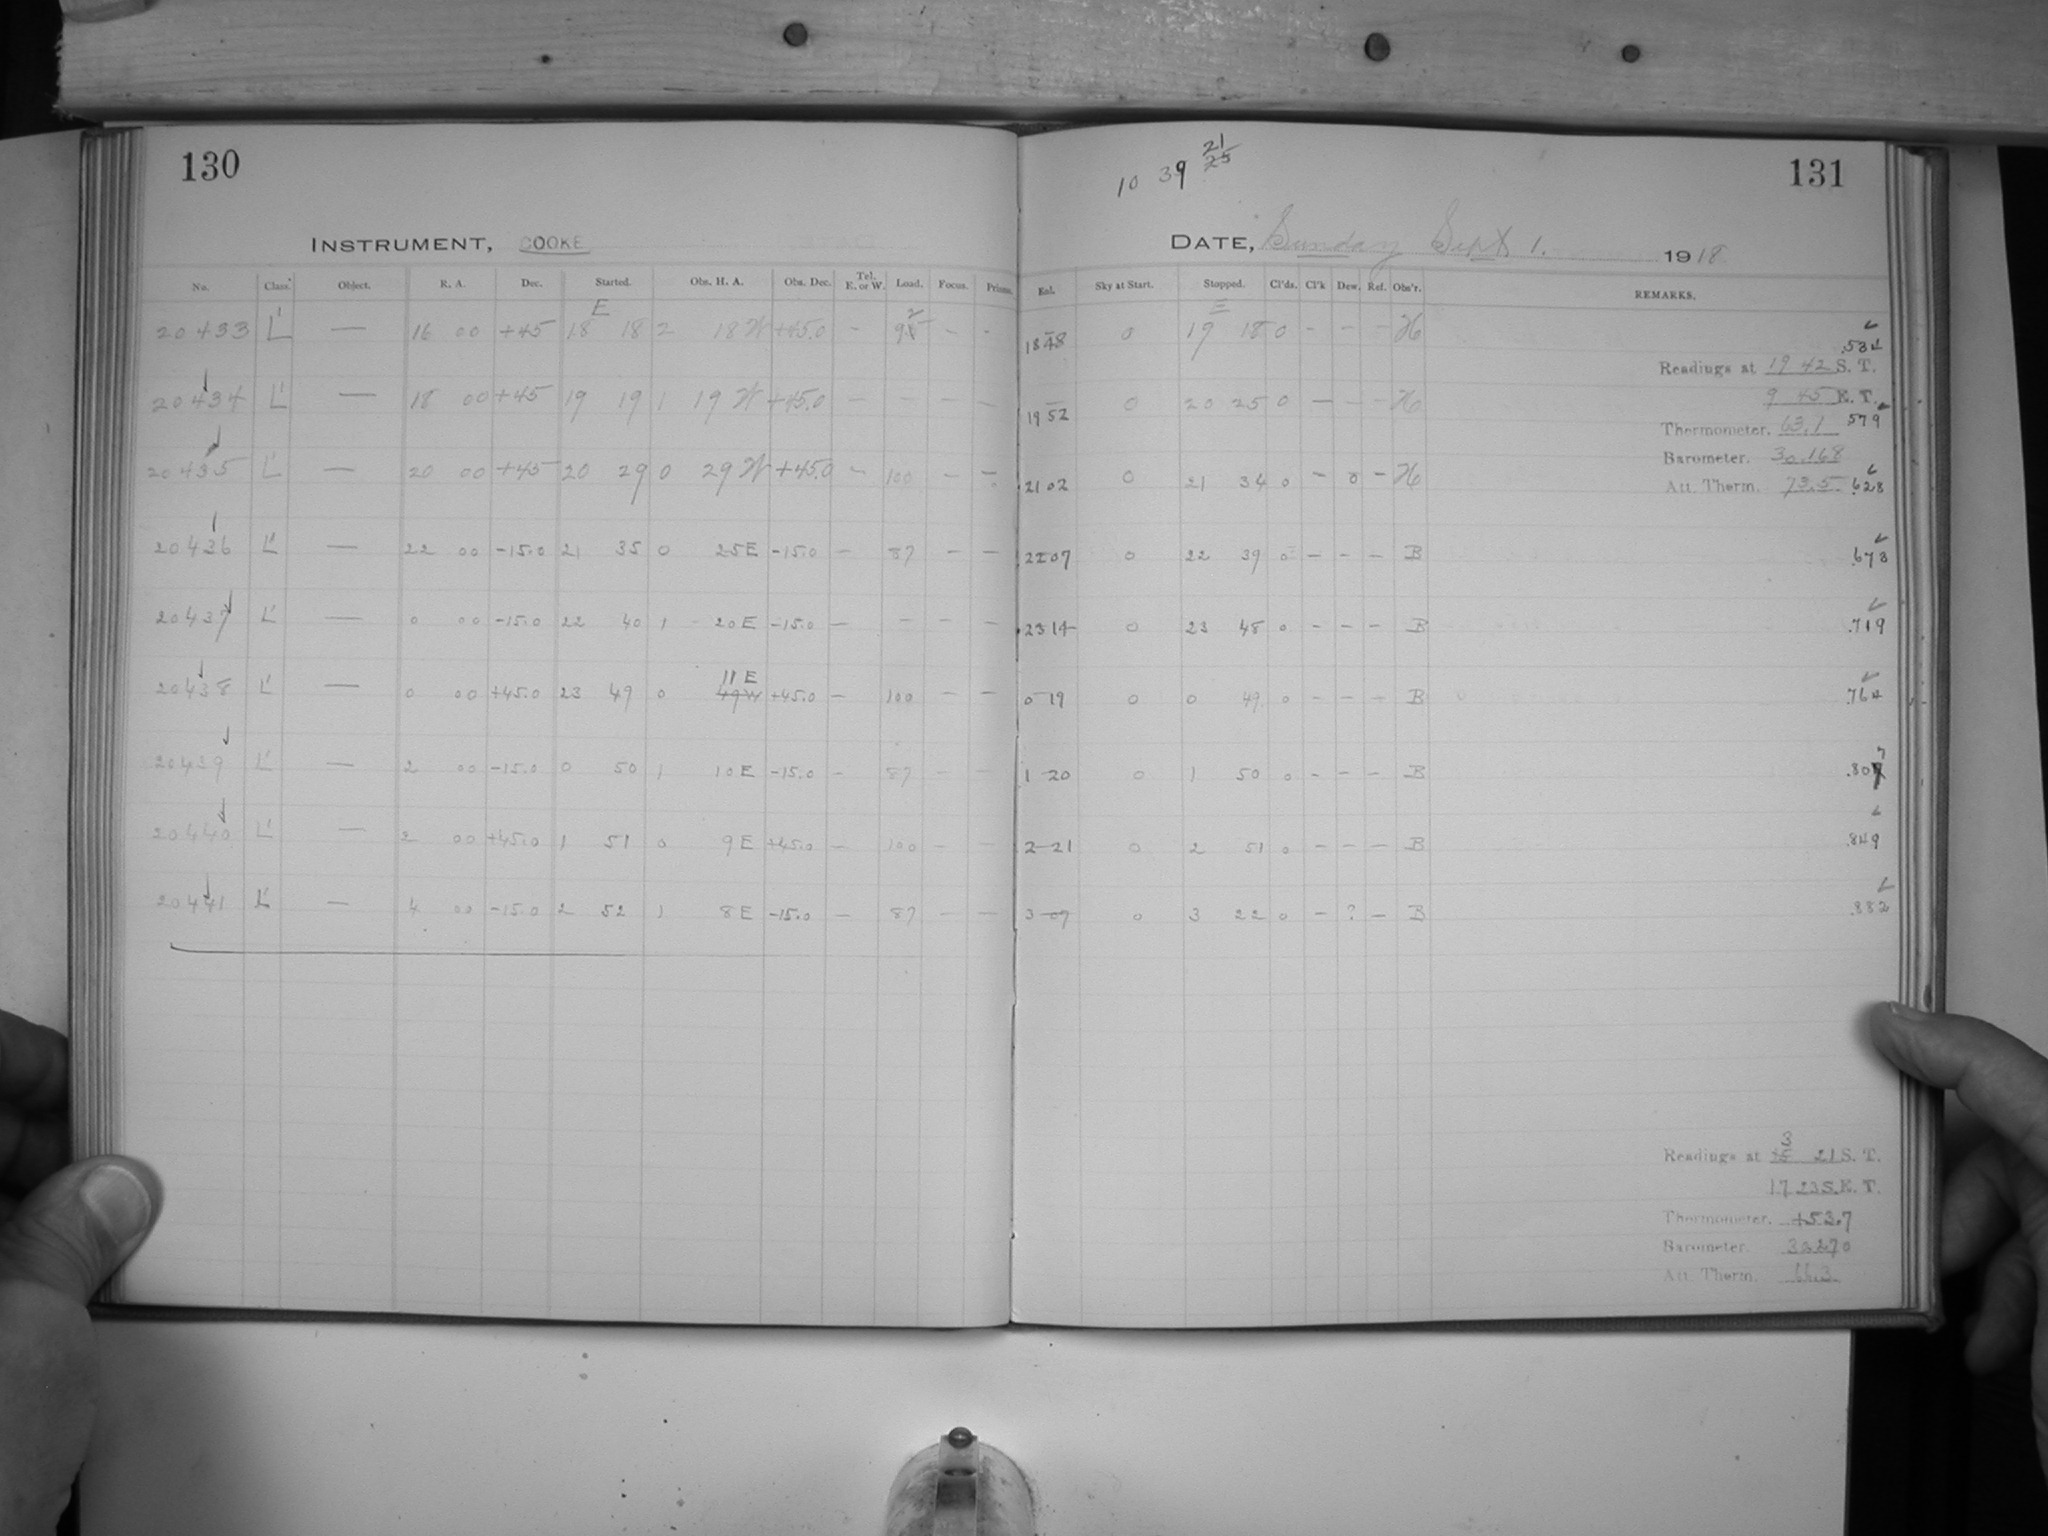 130
INSTRUMENT, COOKE
No. Class. Object. R. A. Dec. Started. Obs. H. A. Obs. Dec. Tel. E. or W. Load. Focus. Prisms.
E
20433 L' — 16 00 +45 18 18 2 18 W +45.0 - - -
20434 L' — 18 00 +45 19 19 1 19 W +45.0 — — — —
20435 L' — 20 00 +45 20 29 0 29 W +45.0 - 100 - -
20436 L' — 22 00 -15.0 21 35 0 25 E -15.0 — 87 - —
20437 L' — 0 00 -15.0 22 40 1 20 E -15.0 — — — —
11 E
20438 L' — 0 00 +45.0 23 49 0 49W +45.0 - 100 - -
20439 L' — 2 00 -15.0 0 50 1 10 E -15.0 - 87 - -
20440 L' — 2 00 +45.0 1 51 0 9 E +45.0 - 100 - —
20441 L' — 4 00 -15.0 2 52 1 8 E -15.0 — 87 — —
131
10 39 21
25
DATE, Sunday Sept 1. 1918
End. Sky at Start. Stopped. Cl'ds. Cl'k Dew. Ref. Obs'r. REMARKS.
E
18 48 0 19 18 0 - - - H .534
Readings at 19 42 S. T.
9 45 E. T.
19 52 0 20 25 0 — - - H 579
Thermometer. 63.1
Barometer. 30.168
Att. Therm. 73.5
21 02 0 21 34 0 - 0 - H .628
22 07 0 22 39 0 - - - B .673
23 14 0 23 48 0 - - - B .719
0 19 0 0 49 0 - - - B .764
1 20 0 1 50 0 - - - B .807
2 21 0 2 51 0 - - — B .849
3 07 0 3 22 0 - ? - B .882
3
Readings at 21 S. T.
17 23 S. E. T.
Thermometer. +53.7
Barometer.
Att. Therm. 66.3